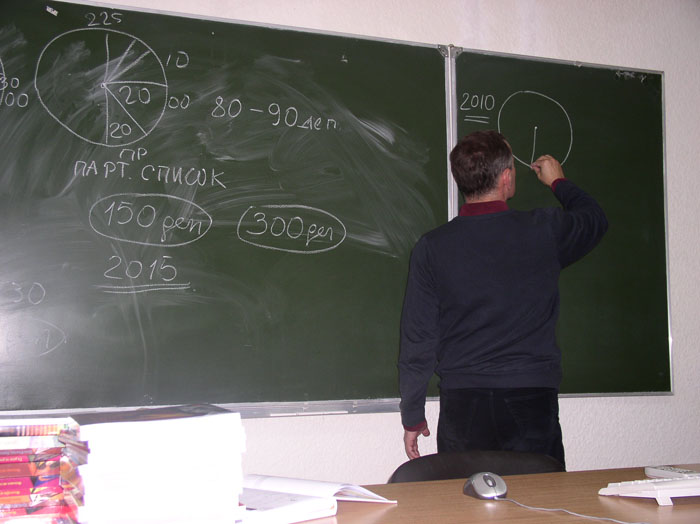 225
30
00
10
20
00
20
80-90 деп.
ПР
ПАРТ. СПИСОК
150 деп
300 деп
2015
30
2010